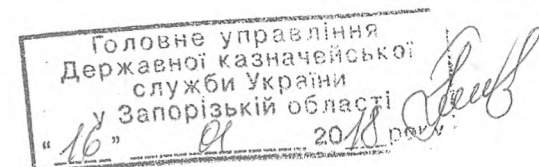 Головне управління
Державної казначейської
служби України
у Запорізькій області
"16" 01 2018 року